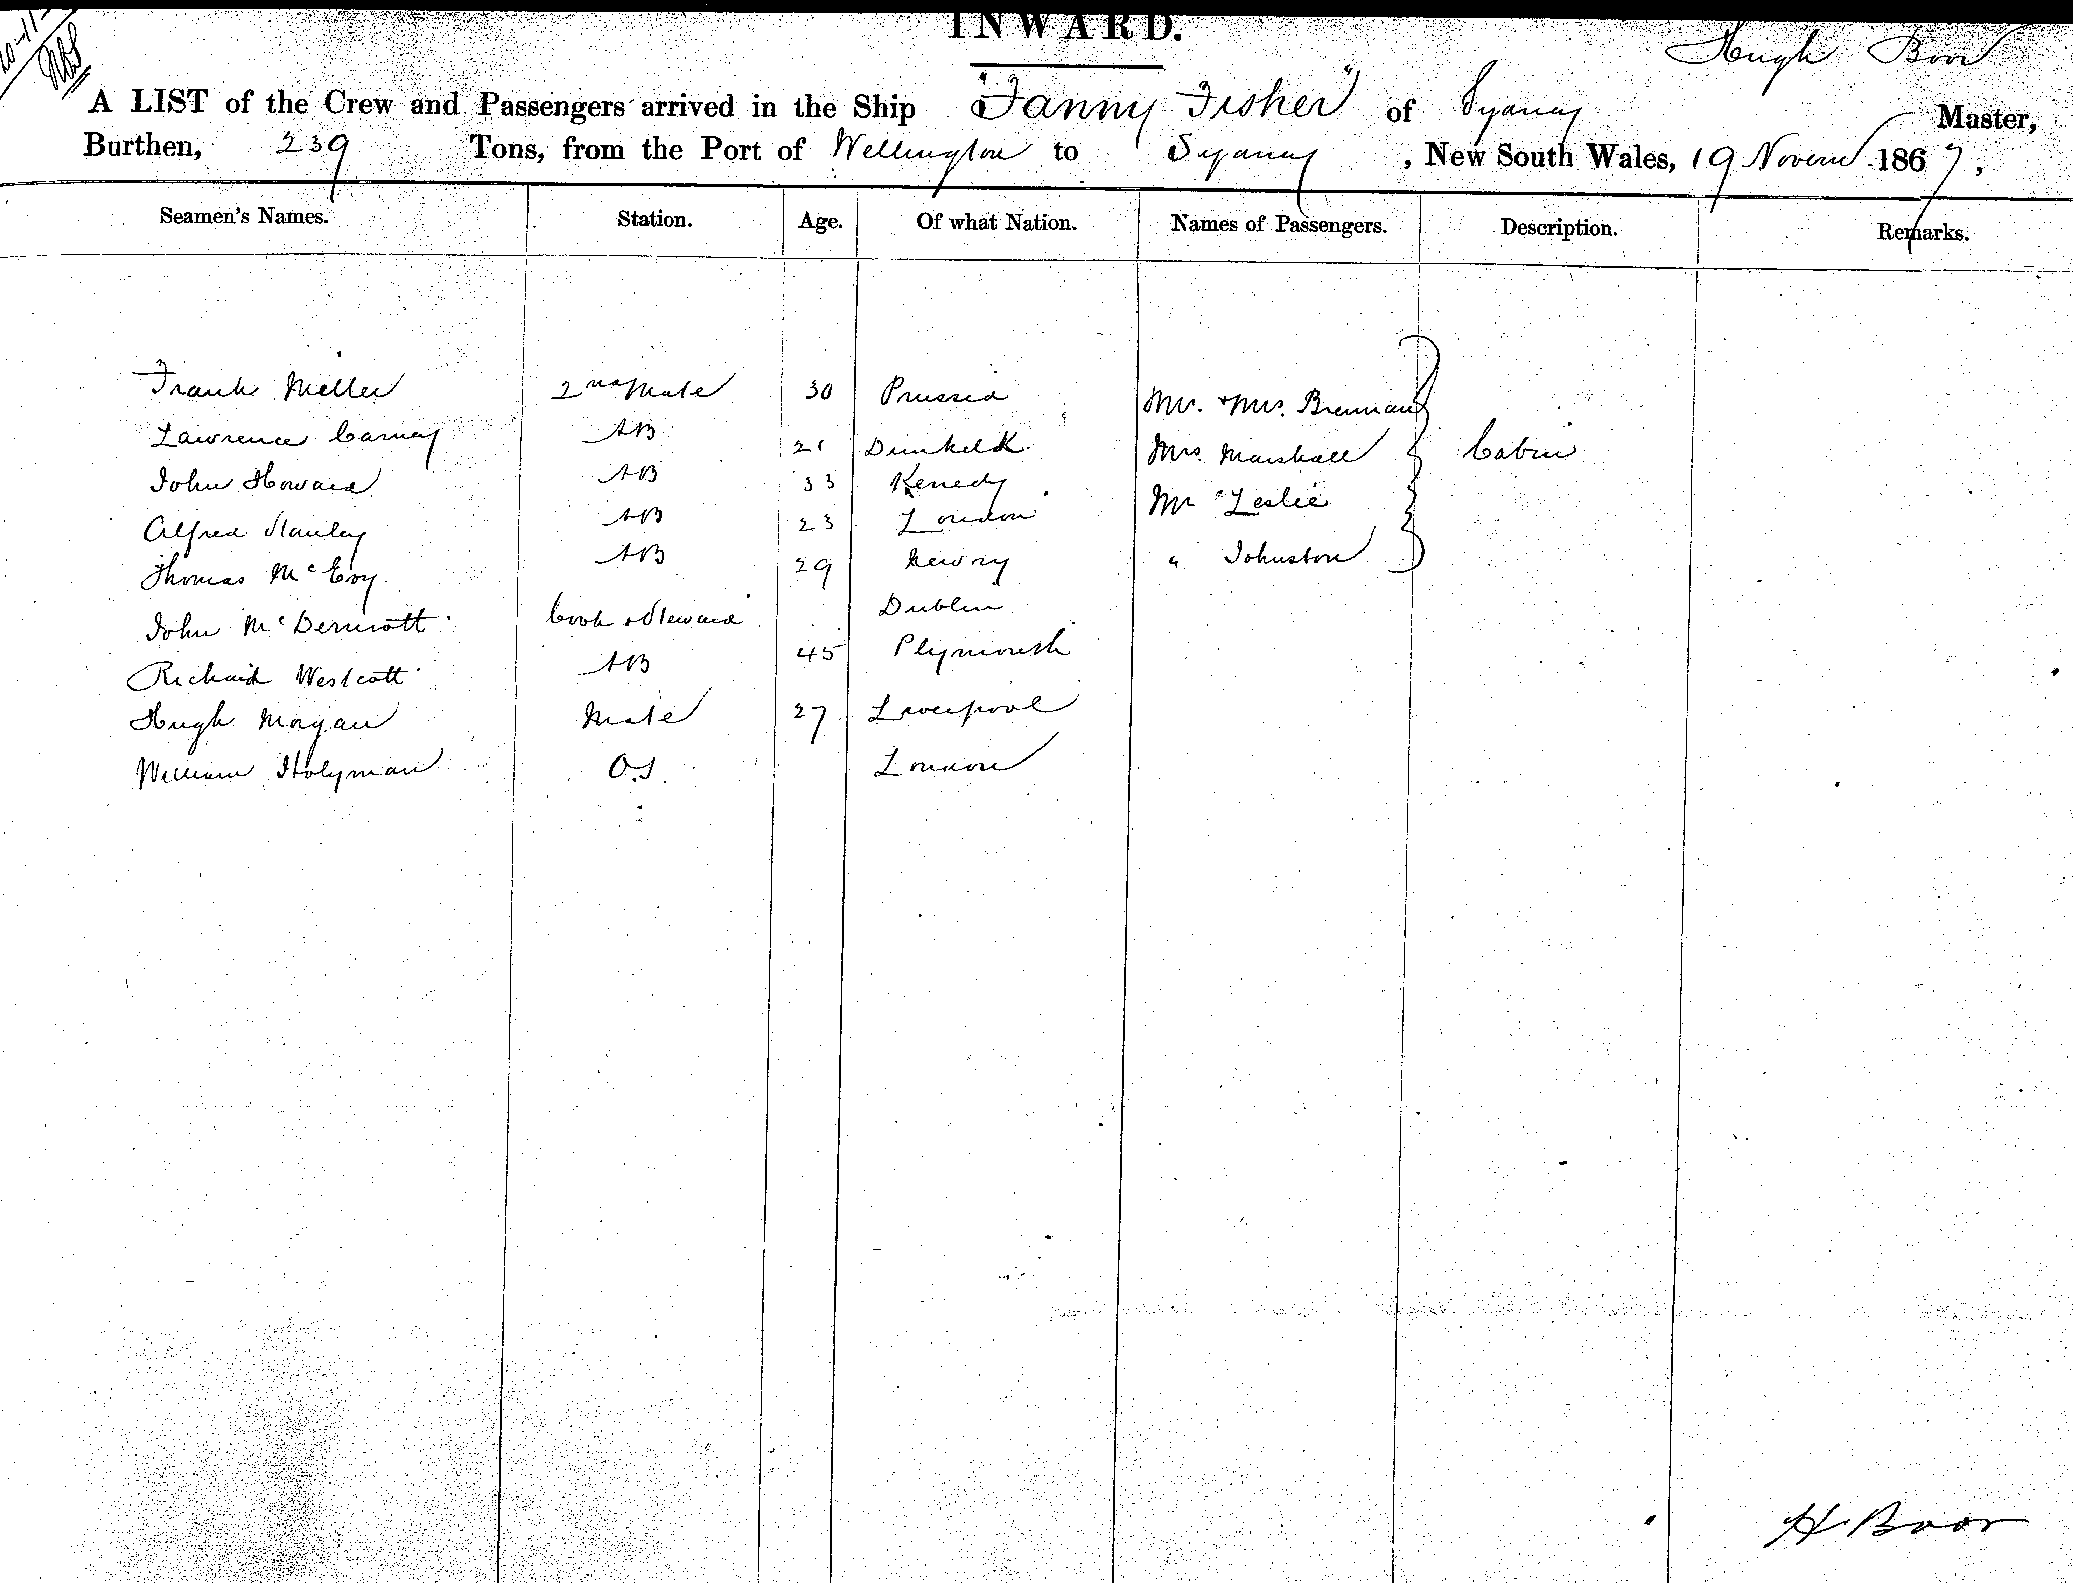 INWARD.
Hugh Boor
A LIST of the Crew and Passengers arrived in the Ship "Fanny Fisher" of Sydney Master,
Burthen, 239 Tons, from the Port of Wellington to Sydney, New South Wales, 19 Novem 1867,
Seamen's Names. Station. Age. Of what Nation. Names of Passengers. Description. Remarks.
Frank Meller 2nd Mate 30 Prussia Mr. & Mrs. Brennan
Lawrence Carney AB 21 Dunkeld Mrs. Marshall Cabin
John Howard AB 33 Kenedy Mr Leslie
Alfred Stanley AB 23 London
Thomas McEvoy AB 29 Newry " Johnston
John McDermott Cook & Steward Dublin
Richard Westcott AB 45 Plymouth
Hugh Magan Mate 27 Liverpool
William Holyman O.S. London
H Boor